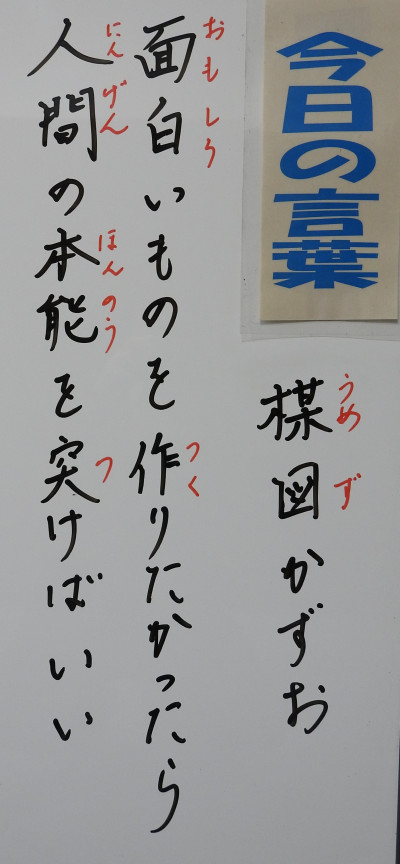 今日の言葉
楳図かずお
うめ ず
面白いものを作りたかったら
おもしろ つく
人間の本能を突けばいい
にんげん ほんのう つ